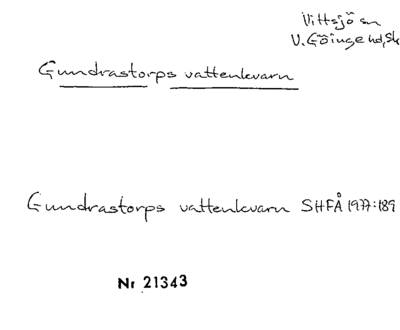 Vittsjö sn
V. Göinge hd, Sk
Gundrastorps vattenkvarn
Gundrastorps vattenkvarn SHFÅ 1977:189
Nr 21343